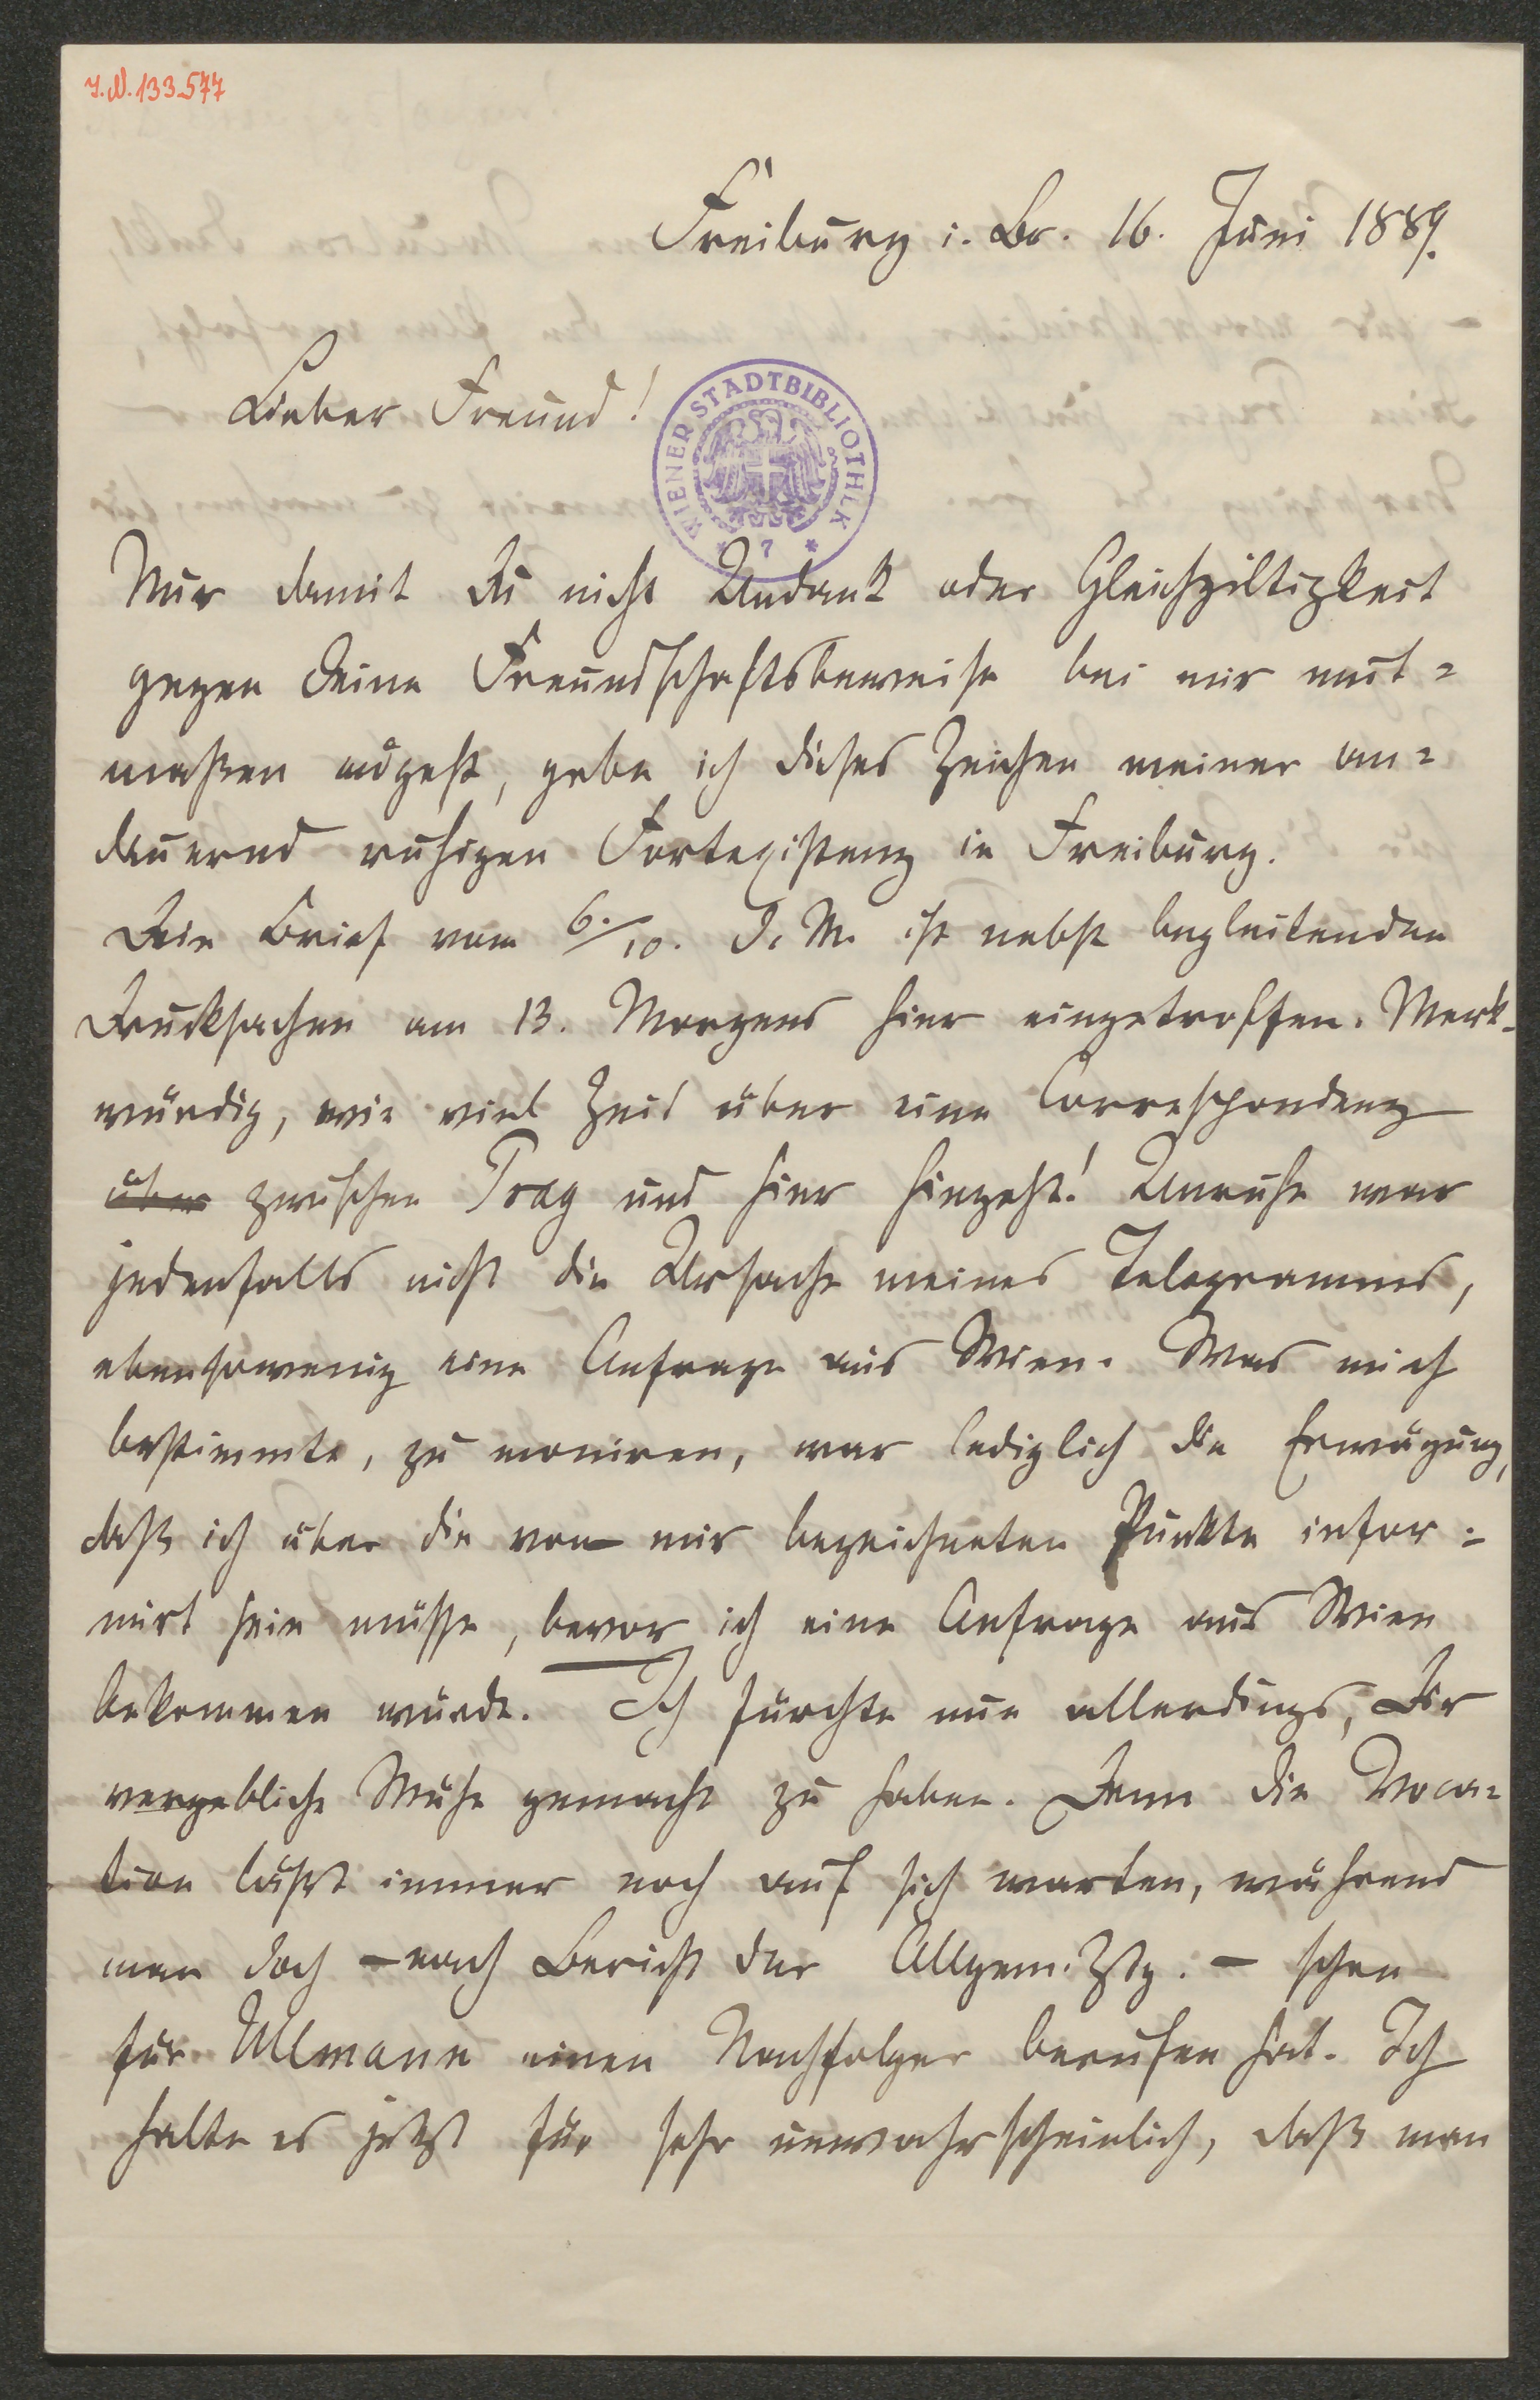 I. N. 133.577
Freiburg i. Br. 16. Juni 1889.
Lieber Freund!
WIENER STADTBIBLIOTHEK
* 7 *
Nur damit Du nicht Undank oder Gleichgiltigkeit
gegen Deine Freundschaftsbeweise bei mir mut=
maßen mögest, gebe ich dieses Zeichen meiner an=
dauernd ruhigen Fortexistenz in Freiburg.
Dein Brief vom 6./10. d. M. ist nebst begleitenden
Drucksachen am 13. Morgens hier eingetroffen. Merk-
würdig, wie viel Zeit über eine Correspondenz
über zwischen Prag und hier hingeht! Unruhe war
jedenfalls nicht die Ursache meines Telegramms,
ebensowenig eine Anfrage aus Wien. Was mich
bestimmte, zu moniren, war lediglich die Erwägung,
daß ich über die von mir bezeichneten Punkte infor=
mirt sein müsse, bevor ich eine Anfrage aus Wien
bekommen würde. Ich fürchte nun allerdings, Dir
vergebliche Mühe gemacht zu haben. Denn die Voca=
tion läßt immer noch auf sich warten, während
man doch – nach Bericht der Allgem. Ztg. – schon
für Ullmann einen Nachfolger berufen hat. Ich
halte es jetzt für sehr unwahrscheinlich, daß man